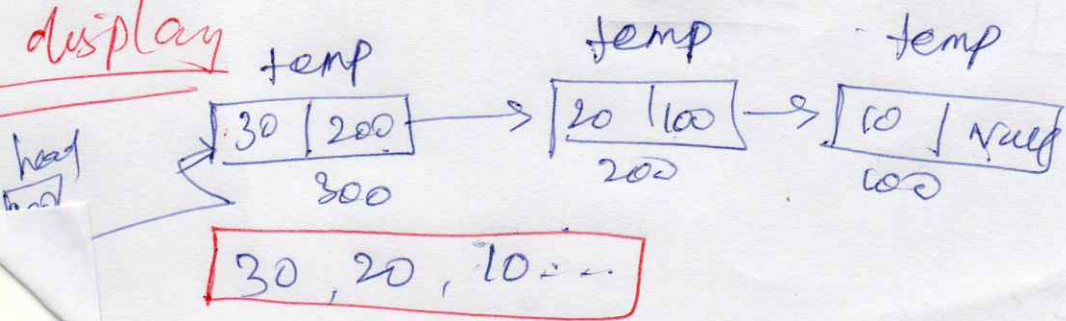 display
temp temp temp
head
30 | 200 20 | 100 10 | Null
300 200 100
30, 20, 10...